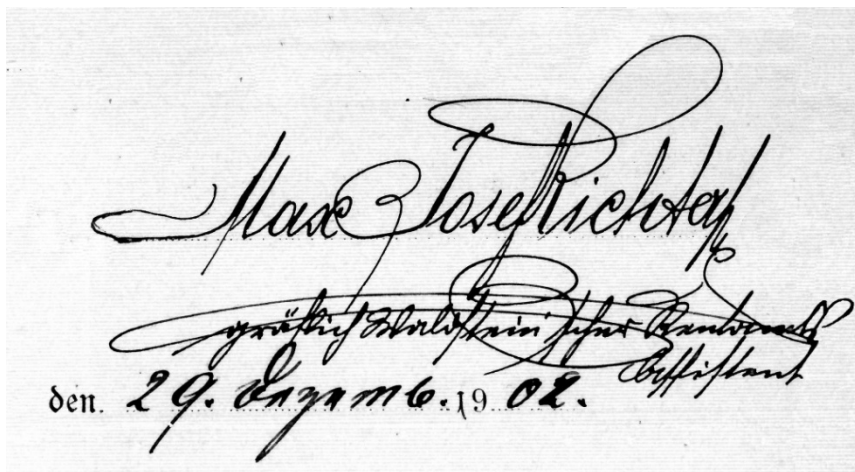 Max Josef Richter
gräflich Waldstein'scher Rentamts
Assistent
den. 29. Dezemb. 1902.